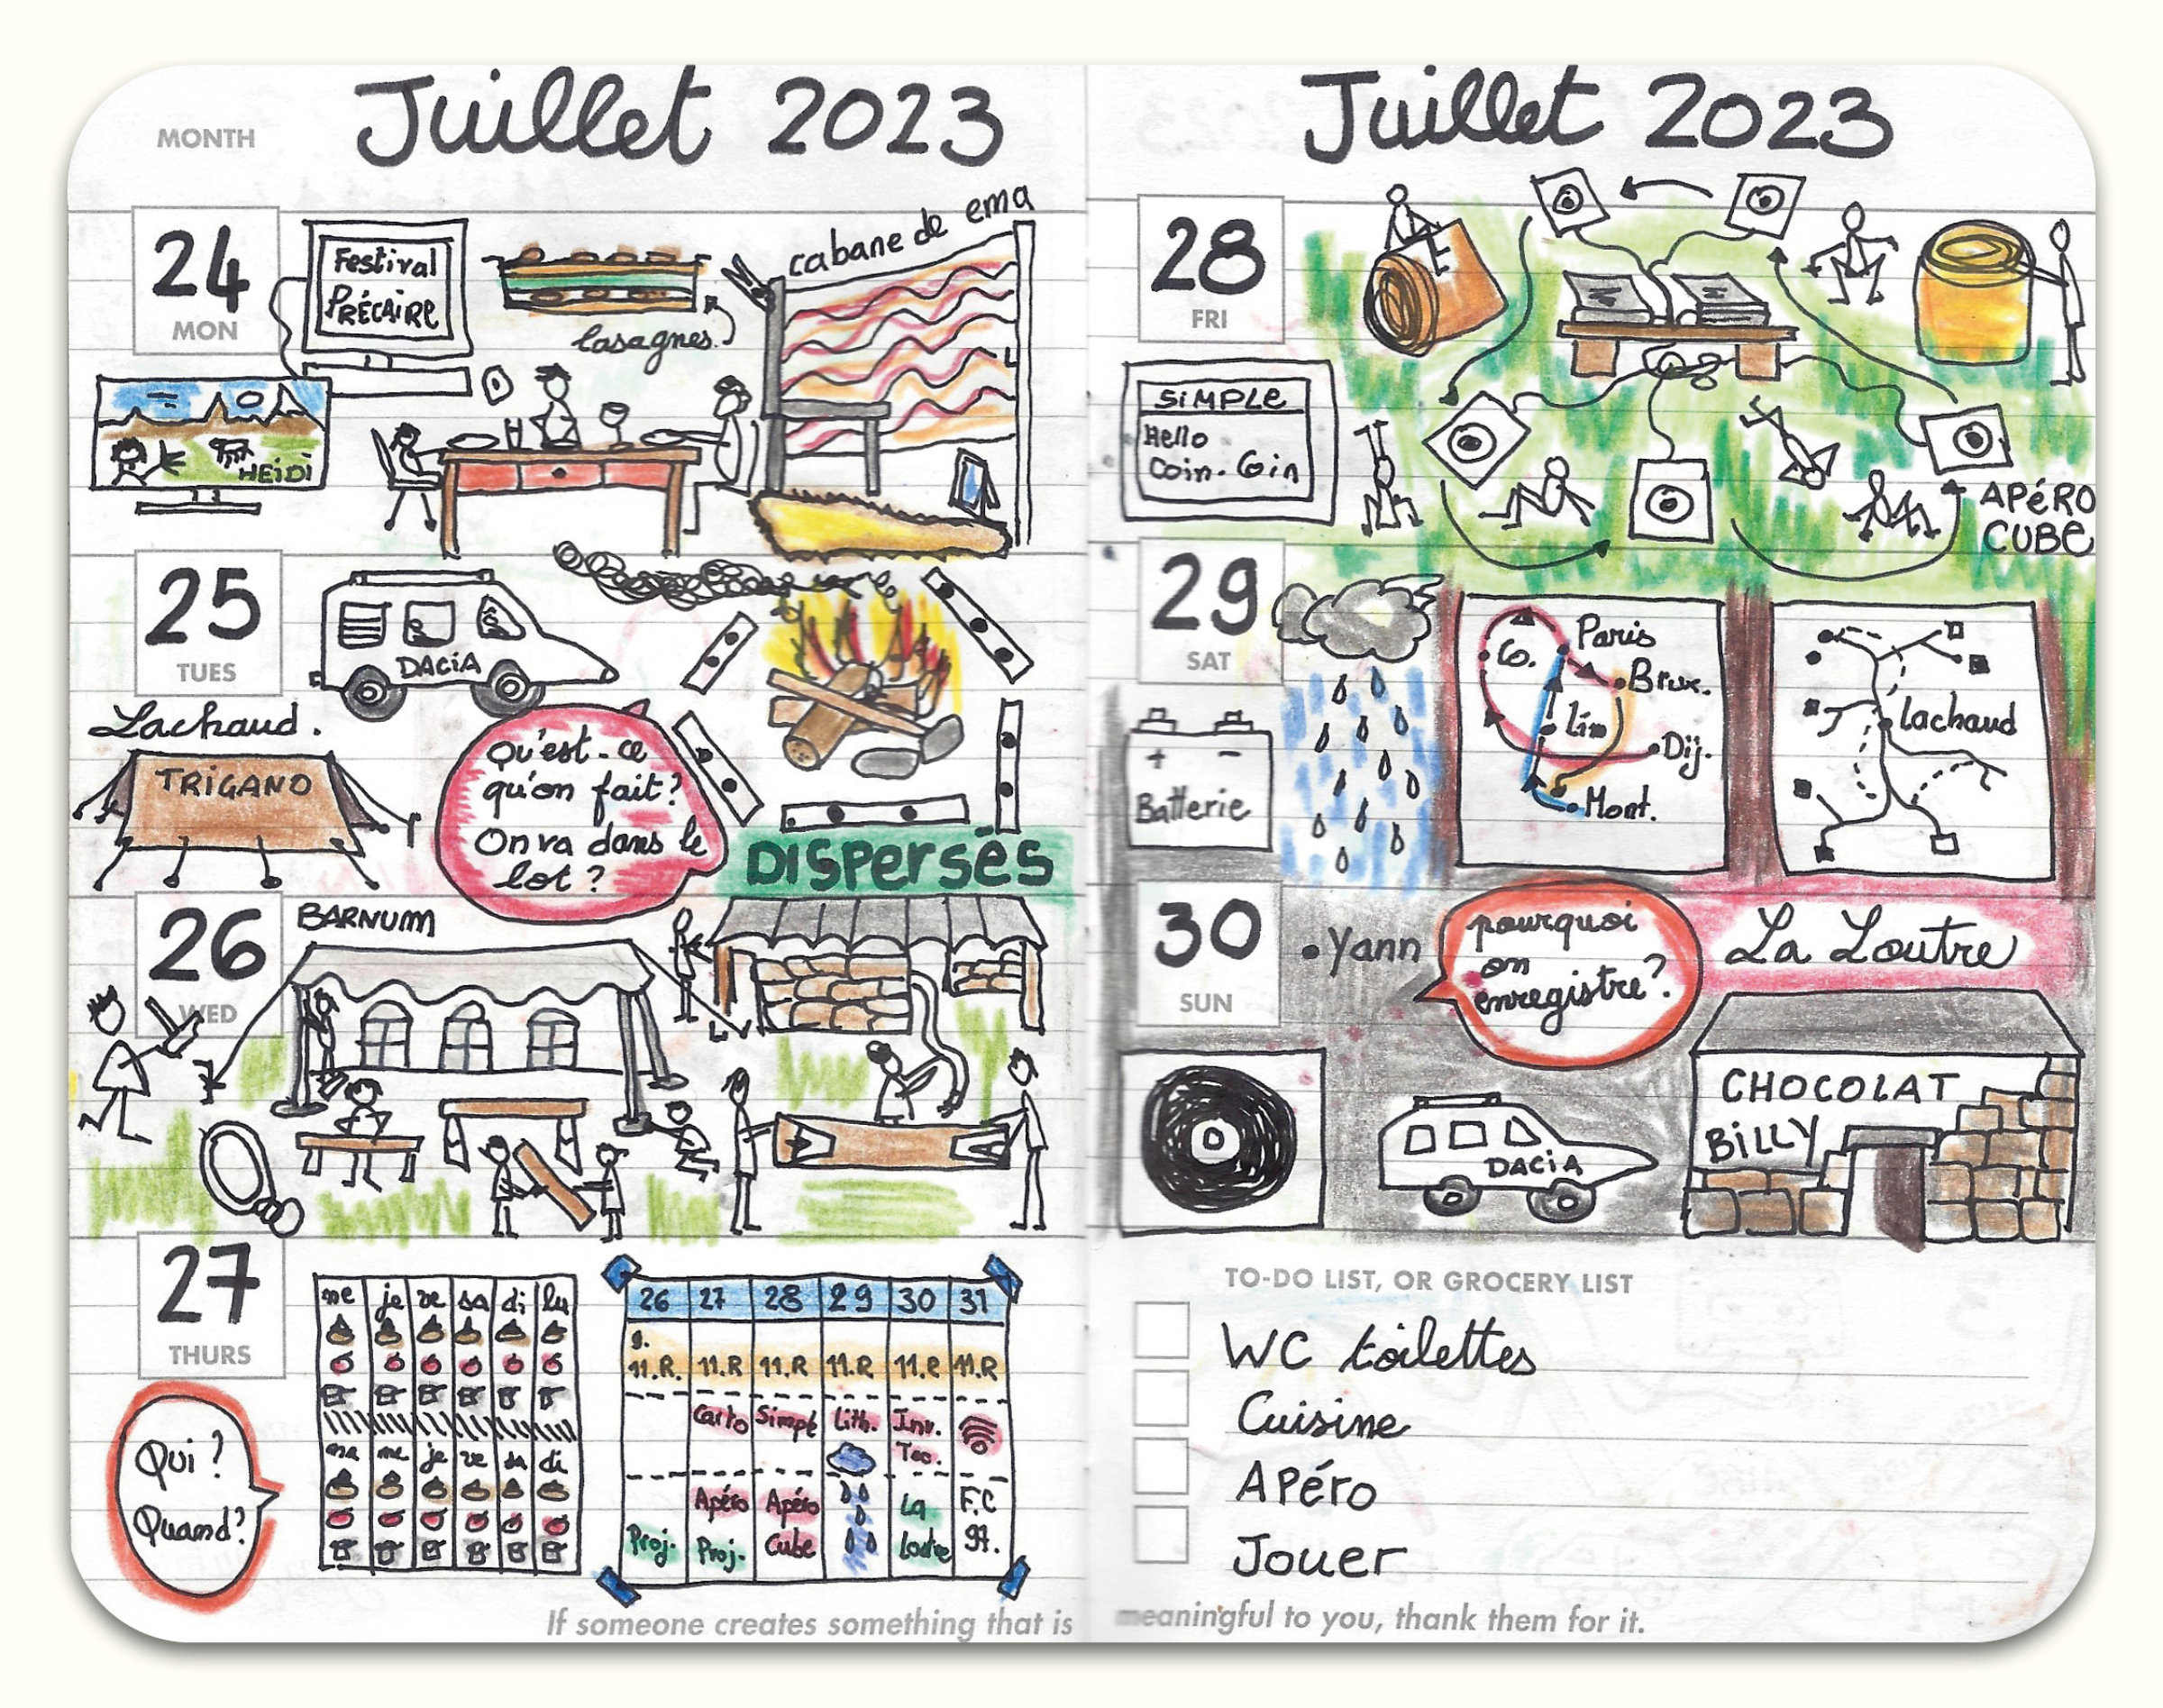 MONTH
Juillet 2023
24
MON
Festival
PRÉCAIRE
lasagnes.
cabane de ema
HEiDi
25
TUES
DACiA
Lachaud.
TRIGANO
Qu'est-ce
qu'on fait?
On va dans le
lot?
DISPERSÉS
26
WED
BARNUM
27
THURS
Qui?
Quand?
me je ve sa di lu
ma me je ve sa di
26 27 28 29 30 31
11.R. 11.R 11.R 11.R 11.R 11.R
Carto Simple Lith. Inv.
Tec.
Apéro Apéro La F.C
Proj. Proj. Cube Loutre
If someone creates something that is
Juillet 2023
28
FRI
SiMPLE
Hello
Coin-Coin
APÉRO
CUBE
29
SAT
Batterie
Paris
Co.
Brux.
Lim
Dij.
Mont.
Lachaud
30
SUN
Yann
pourquoi
on
enregistre?
La Loutre
DACiA
CHOCOLAT
BiLLY
TO-DO LIST, OR GROCERY LIST
WC toilettes
Cuisine
APéro
Jouer
meaningful to you, thank them for it.